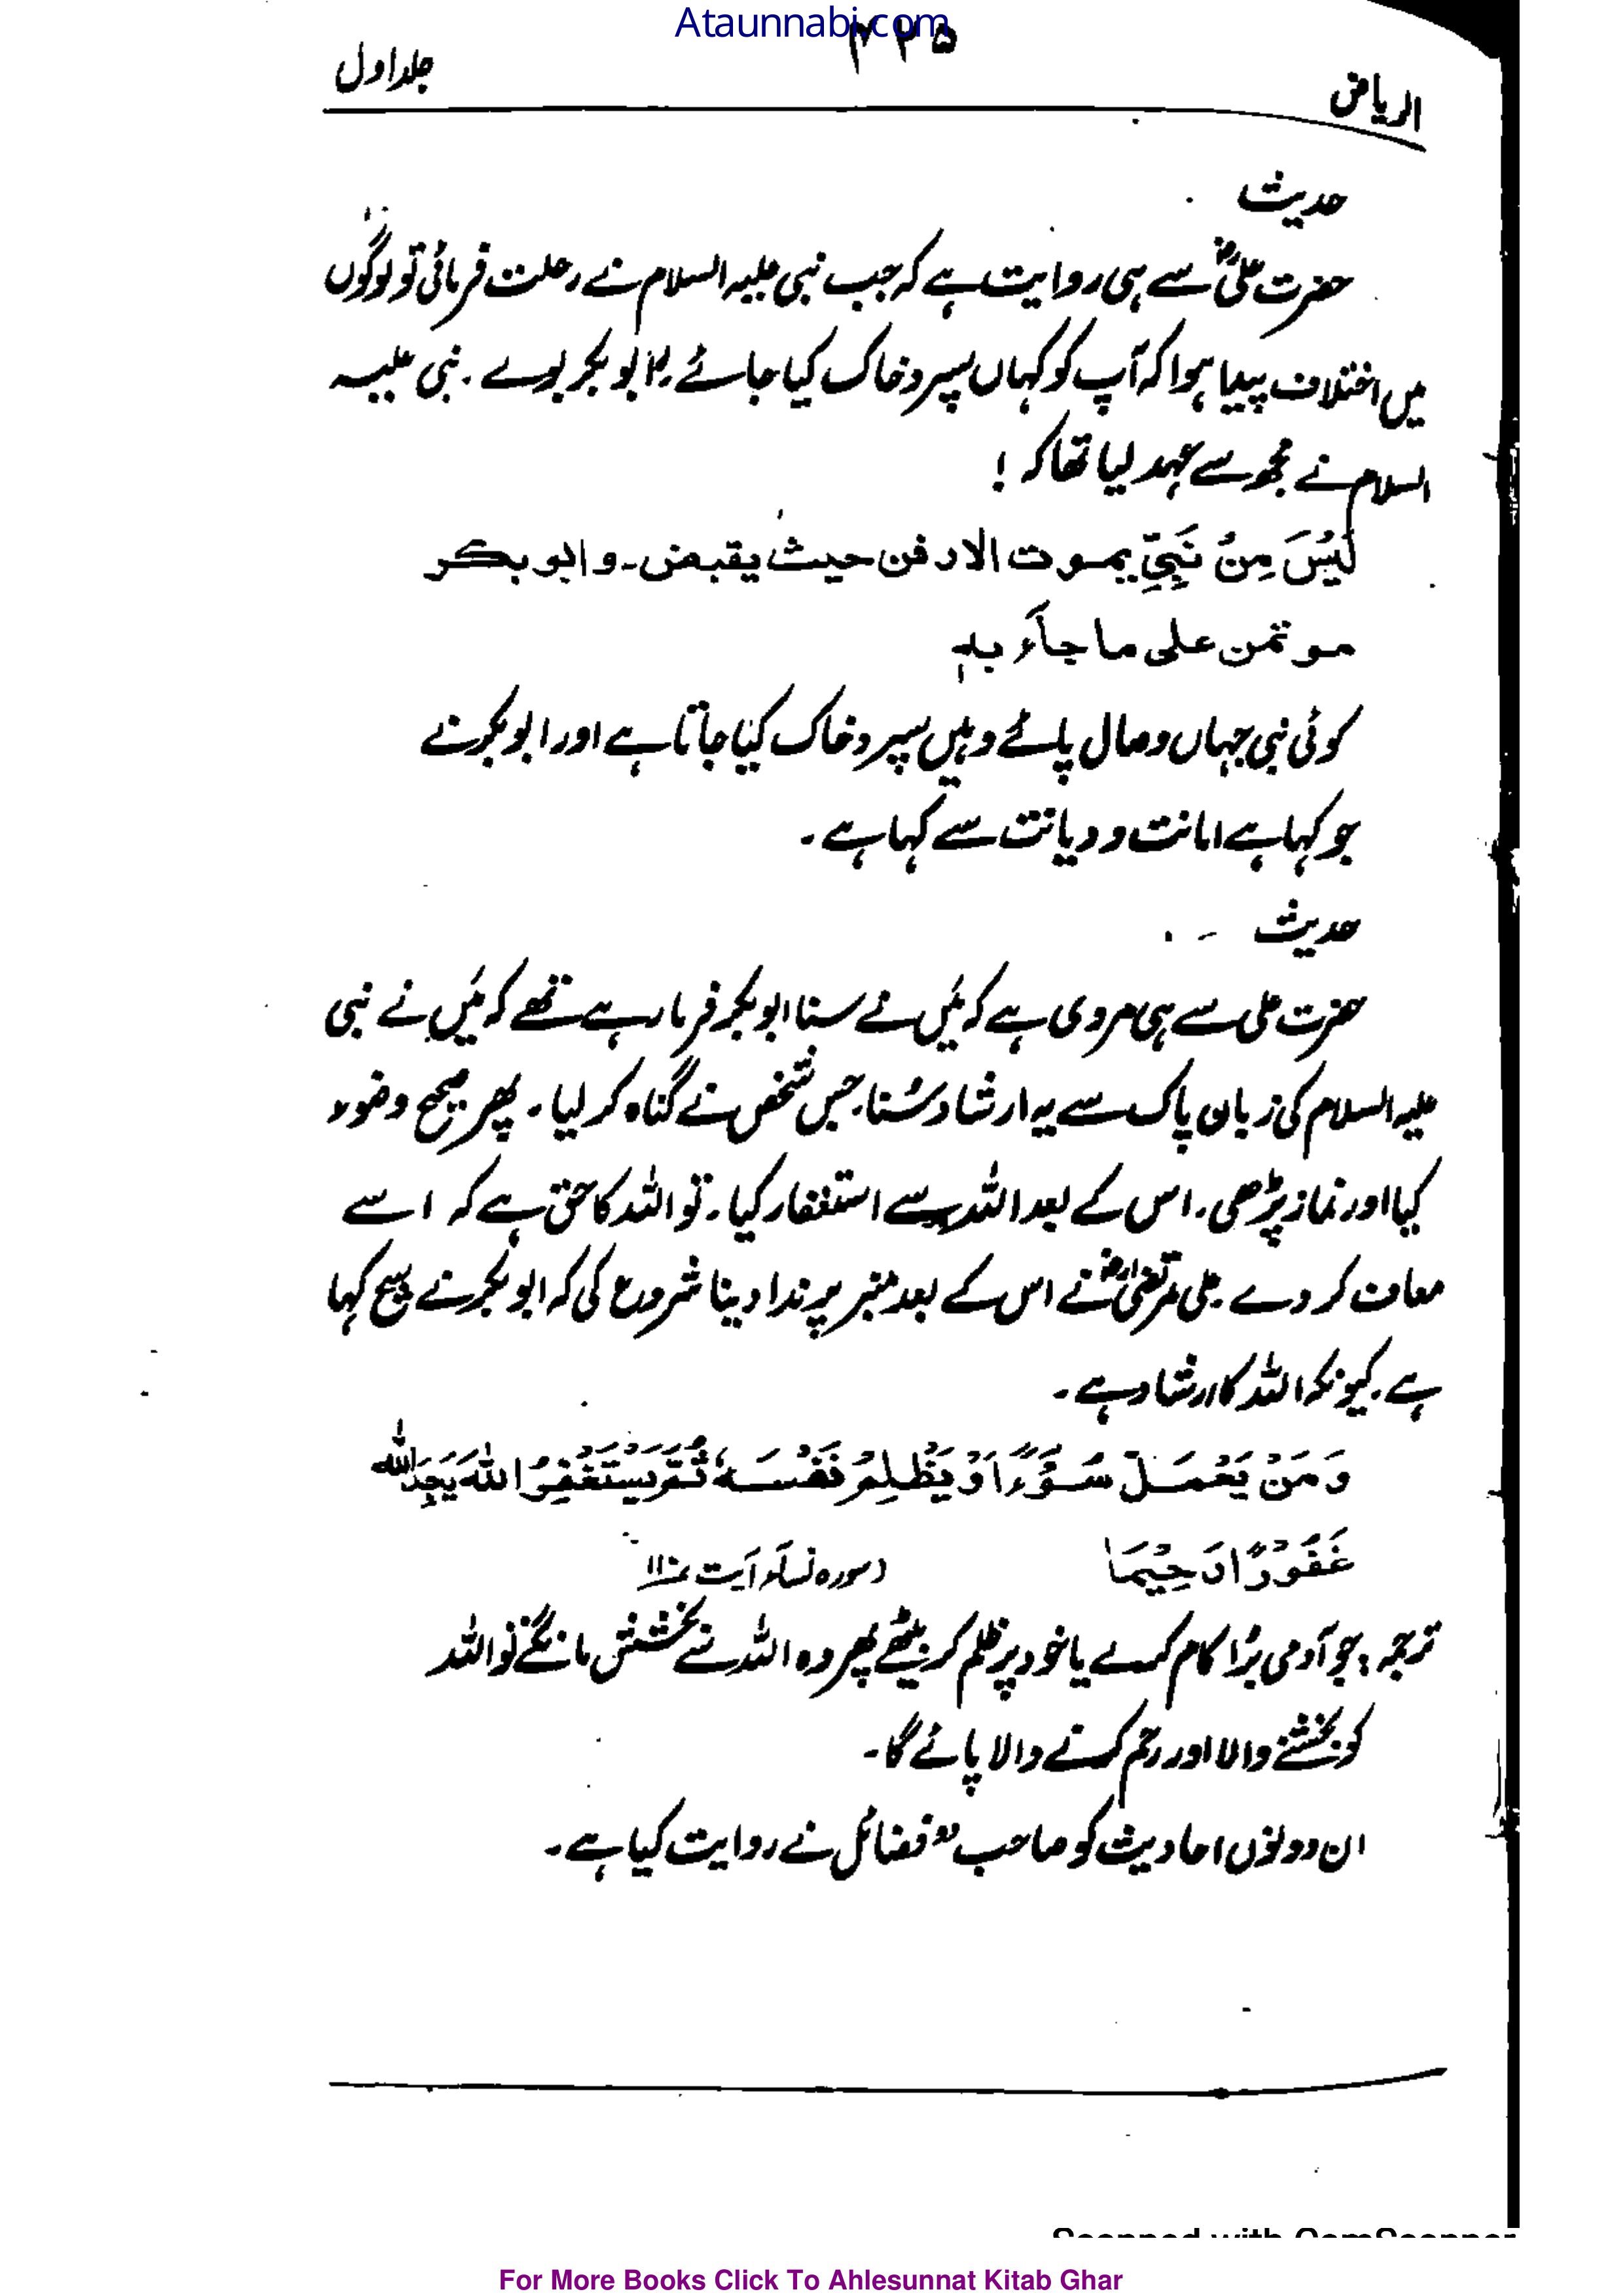 Ataunnabi.com
الریاض
۲۳۵
جلد اول
حدیث
حضرت علیؓ سے ہی روایت ہے کہ جب نبی علیہ السلام نے رحلت فرمائی تو لوگوں
میں اختلاف پیدا ہوا کہ آپ کو کہاں سپرد خاک کیا جائے۔ ابوبکر بولے۔ نبی علیہ
السلام نے مجھ سے عہد لیا تھا کہ !
لَیْسَ مِنْ نَبِیٍّ یموت الا دفن حیث یقبض۔ وابوبکر
موتمن علی ما جآء بہٖ
کوئی نبی جہاں وصال پائے وہیں سپرد خاک کیا جاتا ہے اور ابوبکر نے
جو کہا ہے امانت و دیانت سے کہا ہے۔
حدیث
حضرت علی سے ہی مروی ہے کہ میَں نے سنا ابوبکر فرما رہے تھے کہ میَں نے نبی
علیہ السلام کی زبان پاک سے یہ ارشاد سُنا۔ جس شخص نے گناہ کر لیا۔ پھر صحیح وضوء
کیا اور نماز پڑھی۔ اس کے بعد اللہ سے استغفار کیا۔ تو اللہ کا حق ہے کہ اسے
معاف کر دے۔ علی مرتضیٰؓ نے اس کے بعد منبر پر ندا دینا شروع کی کہ ابوبکر نے سچ کہا
ہے۔ کیونکہ اللہ کا ارشاد ہے۔
وَمَنْ یَعْمَلْ سُوْٓءًا اَوْ یَظْلِمْ نَفْسَہٗ ثُمَّ یَسْتَغْفِرُ اللہَ یَجِدَاللہَ
غَفُوْرًا رَحِیْمَا (سورہ نساء آیت ۱۱۰)
ترجمہ : جو آدمی بُرا کام کرے یا خود پر ظلم کر بیٹھے پھر وہ اللہ سے بخشش مانگے تو اللہ
کو بخشنے والا اور رحم کرنے والا پائے گا۔
ان دونوں احادیث کو صاحب فضائل نے روایت کیا ہے۔
Scanned with CamScanner
For More Books Click To Ahlesunnat Kitab Ghar